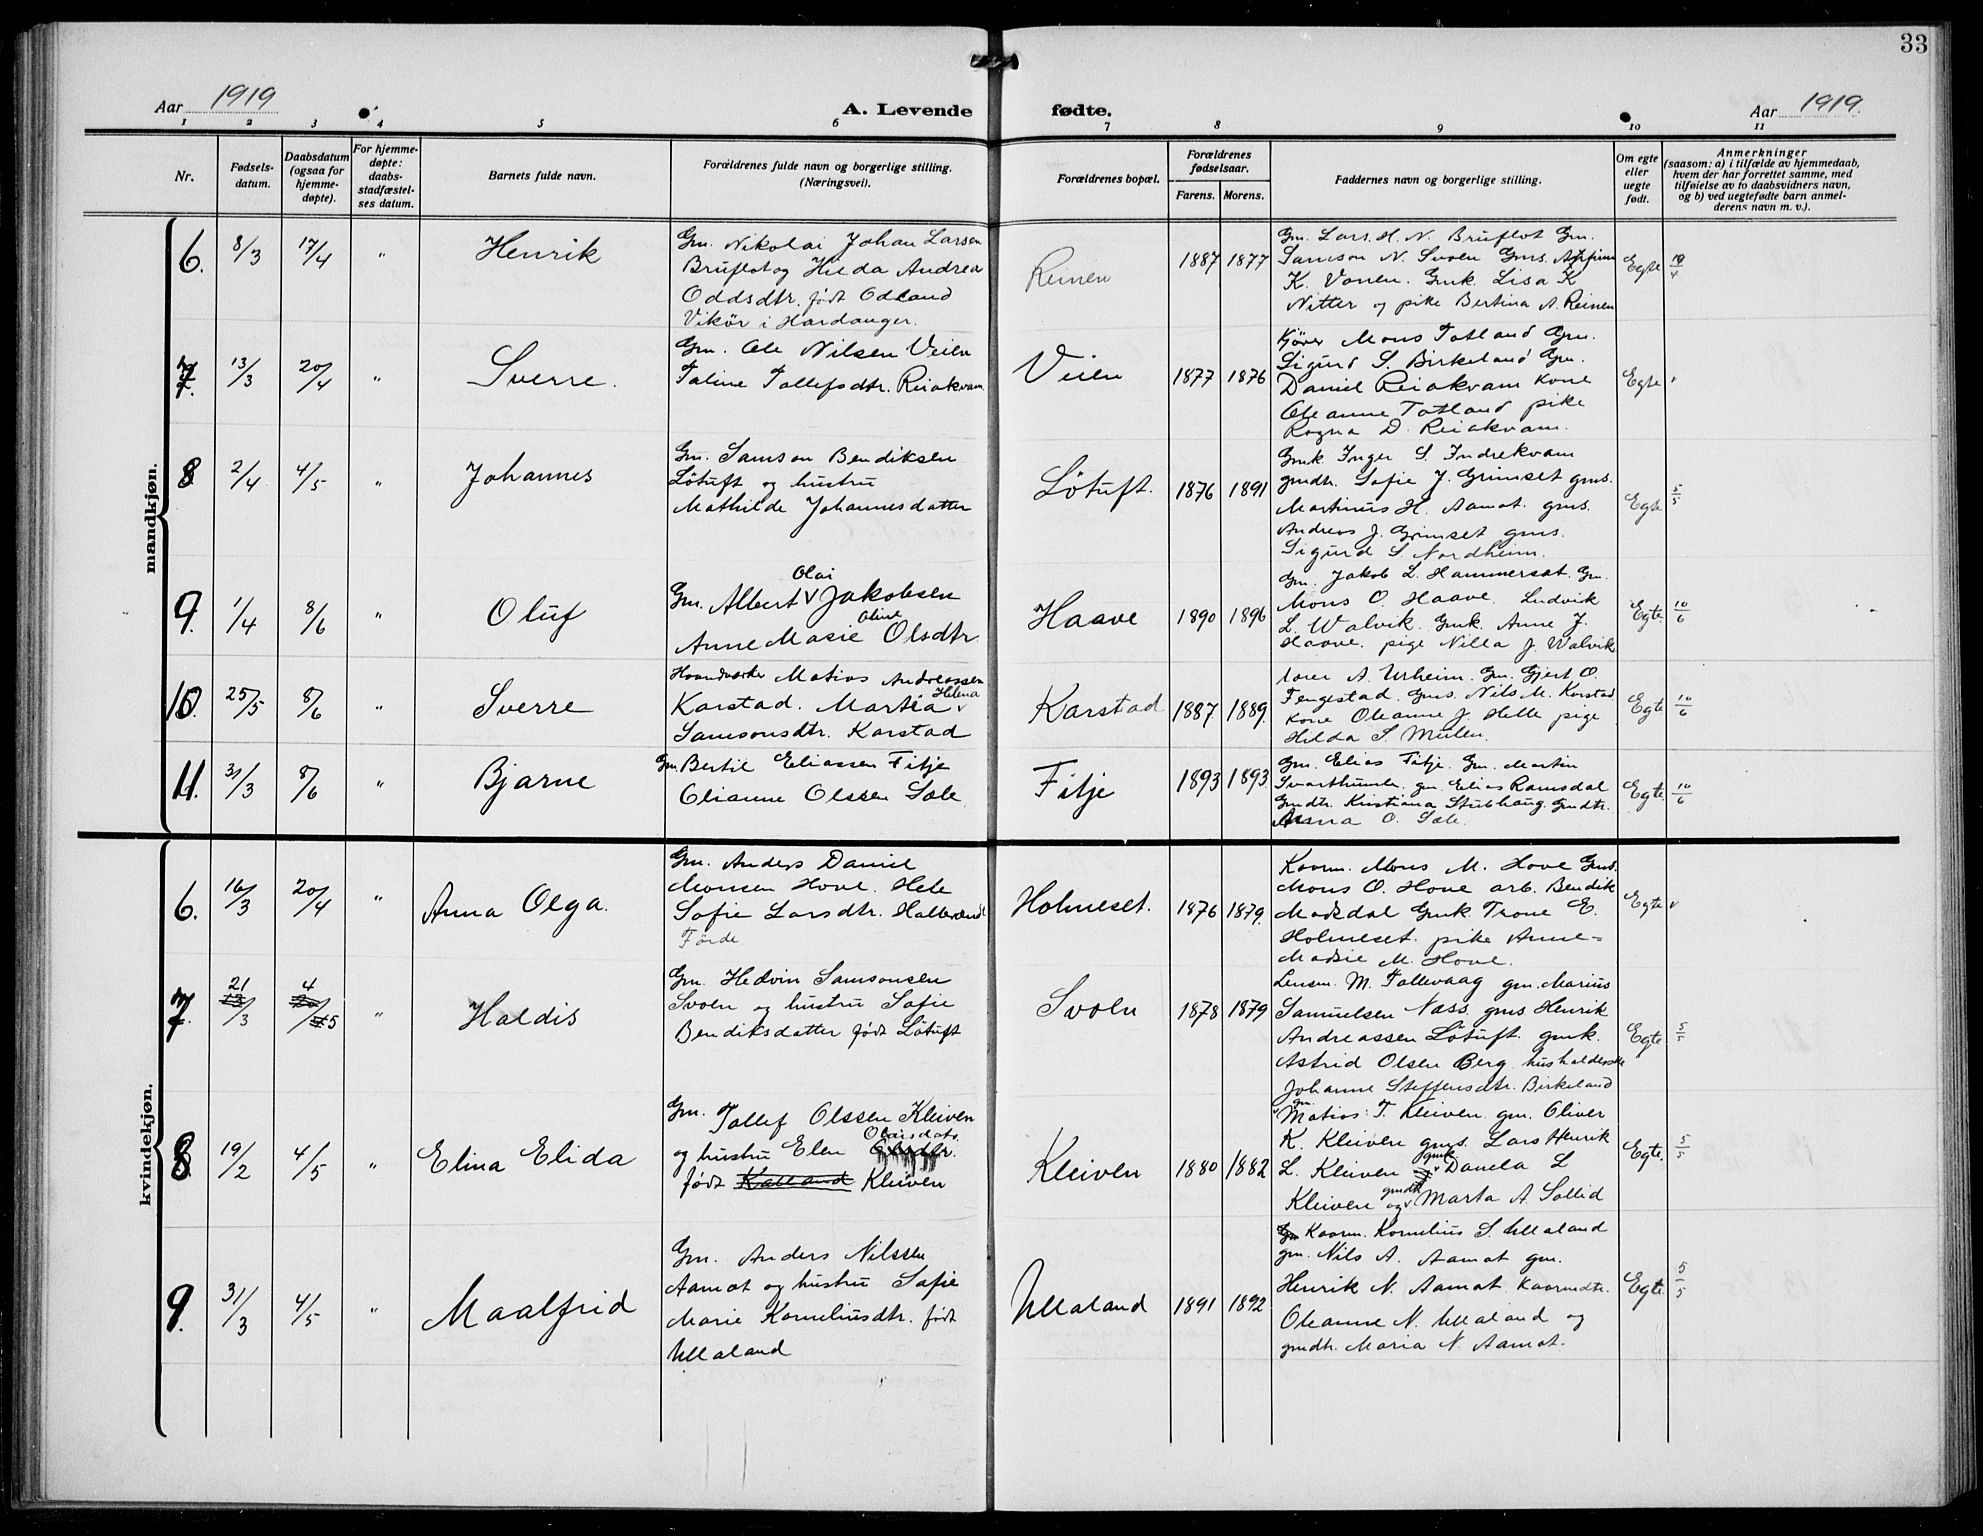 33
Aar 1919
A. Levende fødte.
Aar 1919.
1 2 3 4 5 6 7 8 9 10 11
Nr.
Fødsels-
datum.
Daabsdatum
(ogsaa for
hjemme-
døpte).
For hjemme-
døpte:
daabs-
stadfæstel-
ses datum.
Barnets fulde navn.
Forældrenes fulde navn og borgerlige stilling.
(Næringsvei).
Forældrenes bopæl.
Forældrenes
fødselsaar.
Farens. Morens.
Faddernes navn og borgerlige stilling.
Om egte
eller
uegte
født.
Anmerkninger
(saasom: a) i tilfælde av hjemmedaab,
hvem der har forrettet samme, med
tilføielse av to daabsvidners navn,
og b) ved uegtefødte barn anmel-
derens navn m. v.).
mandkjøn.
6. 8/3 17/4 " Henrik
Gm. Nikolai Johan Larsen
Bruflot og Hilda Andrea
Oddsdtr. født Odland
Vikör i Hardanger.
Reinen
1887 1877
Gm. Lars. H. N. Bruflot Gm.
Samson N. Svoen Gms. Arfinn
K. Vonen. Gmk. Lisa K
Nitter og pike Bertina A. Reinen
Egte 19/4
7. 13/3 20/4 " Sverre.
Gm. Ole Nilsen Veien
Taline Tollefsdtr. Reiakvam
Veien
1877 1876
Kjörer Mons Totland Gm.
Sigurd S. Birkeland Gm.
Daniel Reiakvam Kone
Oleanne Totland pike
Ragna D. Reiakvam.
Egte "
8 2/4 4/5 " Johannes
Gm. Samson Bendiksen
Lötuft og hustru
Mathilde Johannesdatter
Lötuft.
1876 1891
Gmk. Inger S. Indrekvam
gmdtr. Sofie J. Grimset gms.
Martinus H. Aamot. gms.
Andreas J. Grimset gms.
Sigurd S. Nordheim.
Egte 5/5
9. 1/4 8/6 " Oluf
Olai
Gm. Albert V Jakobsen
Oline
Anne Marie Olsdtr.
Haave
1890 1896
Gm. Jakob L. Hammerset. Gm.
Mons O. Haave. Ludvik
L. Walvik. Gmk. Anne J.
Haave. pige Nilla J. Walvik
Egte. 10/6
10. 25/5 8/6 " Sverre
Haandværker Matias Andreassen
Helena
Karstad. Martea v
Samsonsdtr. Karstad
Karstad
1887. 1889.
Lærer A. Urheim. Gm. Gjert O.
Tengestad. Gms. Nils M. Karstad
Kone Oleanne J. Helle pige
Hilda S. Mulen.
Egte 10/6
11. 31/3 8/6 " Bjarne
Gm. Bertil Eliassen Fitje
Olianne Olsen Sæle.
Fitje
1893 1893
Gm. Elias Fitje. Gm. Martin
Svarthumle. gm. Elias Ramsdal
Gmdtr. Kristiana Stubhaug. Gmdtr.
Anna O. Sæle.
Egte. 10/6
kvindekjøn.
6. 16/3 20/4 " Anna Olga.
Gm. Anders Daniel
Monsen Hove. Hele
Sofie Larsdtr. Halbrendt
Förde.
Holmeset.
1876 1879.
Kaarm. Mons M. Hove Gms.
Mons O. Hove arb. Bendik
Madsdal Gmk. Trone E.
Holmeset. pike Anne=
Marie M. Hove.
Egte "
7. 21/3 4/5 " Haldis
Gm. Hedvin Samsonsen
Svoen og hustru Sofie
Bendiksdatter født Lötuft
Svoen
1878 1879
Lensm. M. Tollevaag gm. Marius
Samuelsen Næss. gms. Henrik
Andreassen Lötuft. gmk.
Astrid Olsen Berg husholderske
Johanne Steffensdtr. Birkeland
Egte. 5/5
8 19/2 4/5 " Elina Elida
Gm. Tollef Olssen Kleiven
Olaisdatr.
og hustru Elen
født Kalland Kleiven
Kleiven
1880 1882
gm.
Matias T. Kleiven. gm. Oliver
K. Kleiven gms. Lars Henrik
gmk.
L. Kleiven Daniela L
gmdtr.
Kleiven og v Marta A. Sollid
Egte. 5/5
9. 31/3 4/5 " Maalfrid
Gm. Anders Nilssen
Aamot og hustru Sofie
Marie Korneliusdtr. født
Ullaland
Ullaland
1891 1892
Gm Kaarm. Kornelius S. Ullaland
gm. Nils A. Aamot gm.
Henrik N. Aamot. Kaarmdtr.
Oleanne N. Ullaland og
gmdtr. Maria N. Aamot.
Egte. 5/5